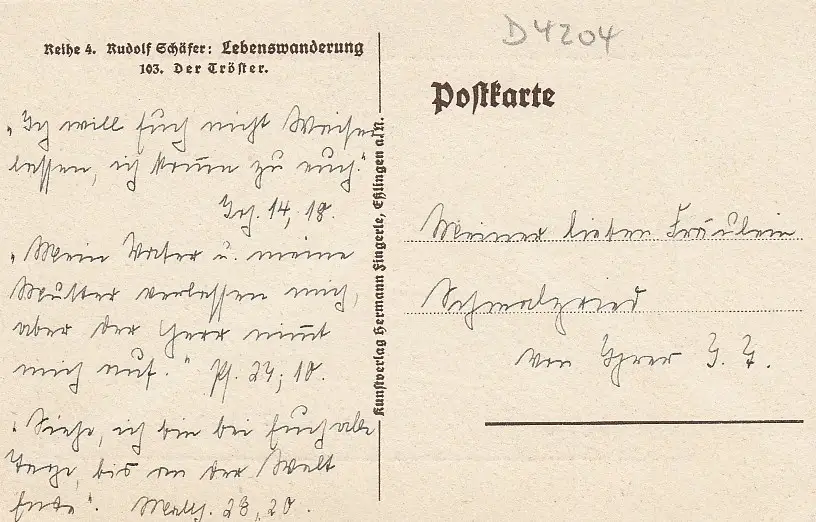 D4204
Reihe 4. Rudolf Schäfer: Lebenswanderung
103. Der Tröster.
„Ich will Euch nicht Waisen
lassen, ich kom̄e zu euch."
Joh. 14, 18.
„Mein Vater u. meine
Mutter verlassen mich,
aber der Herr nim̄t
mich auf." Ps. 27, 10.
„Siehe, ich bin bei Euch alle
Tage, bis an der Welt
Ende". Matth. 28, 20.
Kunstverlag Hermann Fingerle, Eßlingen a.N.
Postkarte
Meiner lieben Fräulein
Schmalzried
von Ihrer